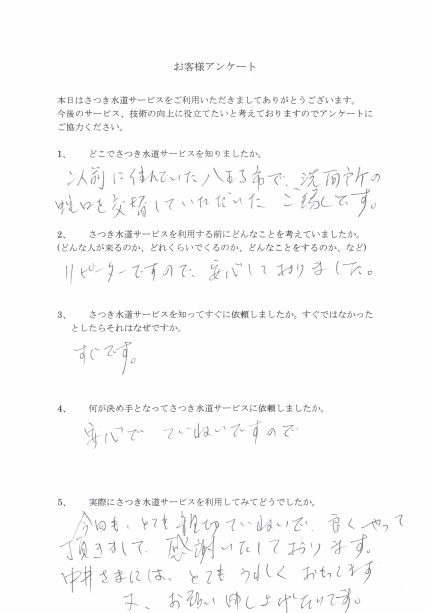 お客様アンケート
本日はさつき水道サービスをご利用いただきましてありがとうございます。
今後のサービス、技術の向上に役立てたいと考えておりますのでアンケートに
ご協力ください。
1、 どこでさつき水道サービスを知りましたか。
以前に住んでいた八王子市で、洗面所の
蛇口を交替していただいた ご縁です。
2、 さつき水道サービスを利用する前にどんなことを考えていましたか。
(どんな人が来るのか、どれくらいでくるのか、どんなことをするのか、など)
リピーターですので、安心しておりました。
3、 さつき水道サービスを知ってすぐに依頼しましたか。すぐではなかった
としたらそれはなぜですか。
すぐです。
4、 何が決め手となってさつき水道サービスに依頼しましたか。
安心で ていねいですので
5、 実際にさつき水道サービスを利用してみてどうでしたか。
今日も、とても親切ていねいで、良くやって
頂きまして、感謝いたしております。
中井さまには、とても うれしく おもってます
又、お願い申し上げたいです。